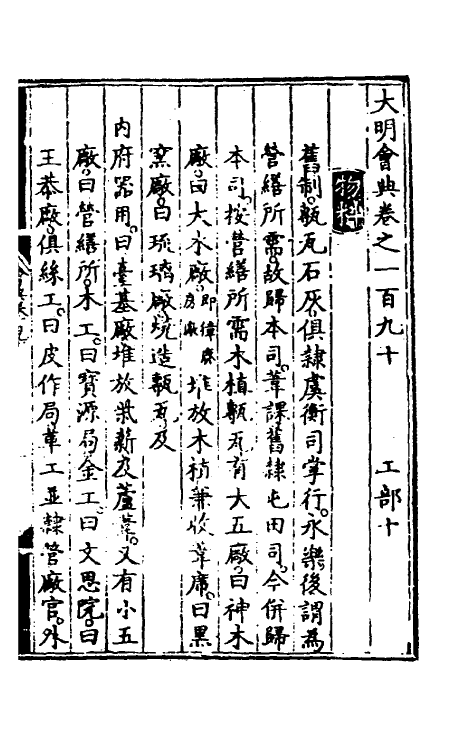 大明會典卷之一百九十　工部十
物料
舊制。甎瓦石灰。俱隷虞衡司掌行。永樂後。謂為
營繕所需。故歸本司。葦課舊隷屯田司。今併歸
本司。按營繕所需木植甎瓦。有大五廠。曰神木
廠。曰大木廠。堆放木植兼收葦席。曰黑
窯廠。曰琉璃廠。燒造甎瓦及
内府器用。曰臺基廠。堆放柴薪及蘆葦。又有小五
廠。曰營繕所。木工。曰寶源局。金工。曰文思院。曰
王恭廠。俱絲工。曰皮作局。革工。並隷管廠官。外